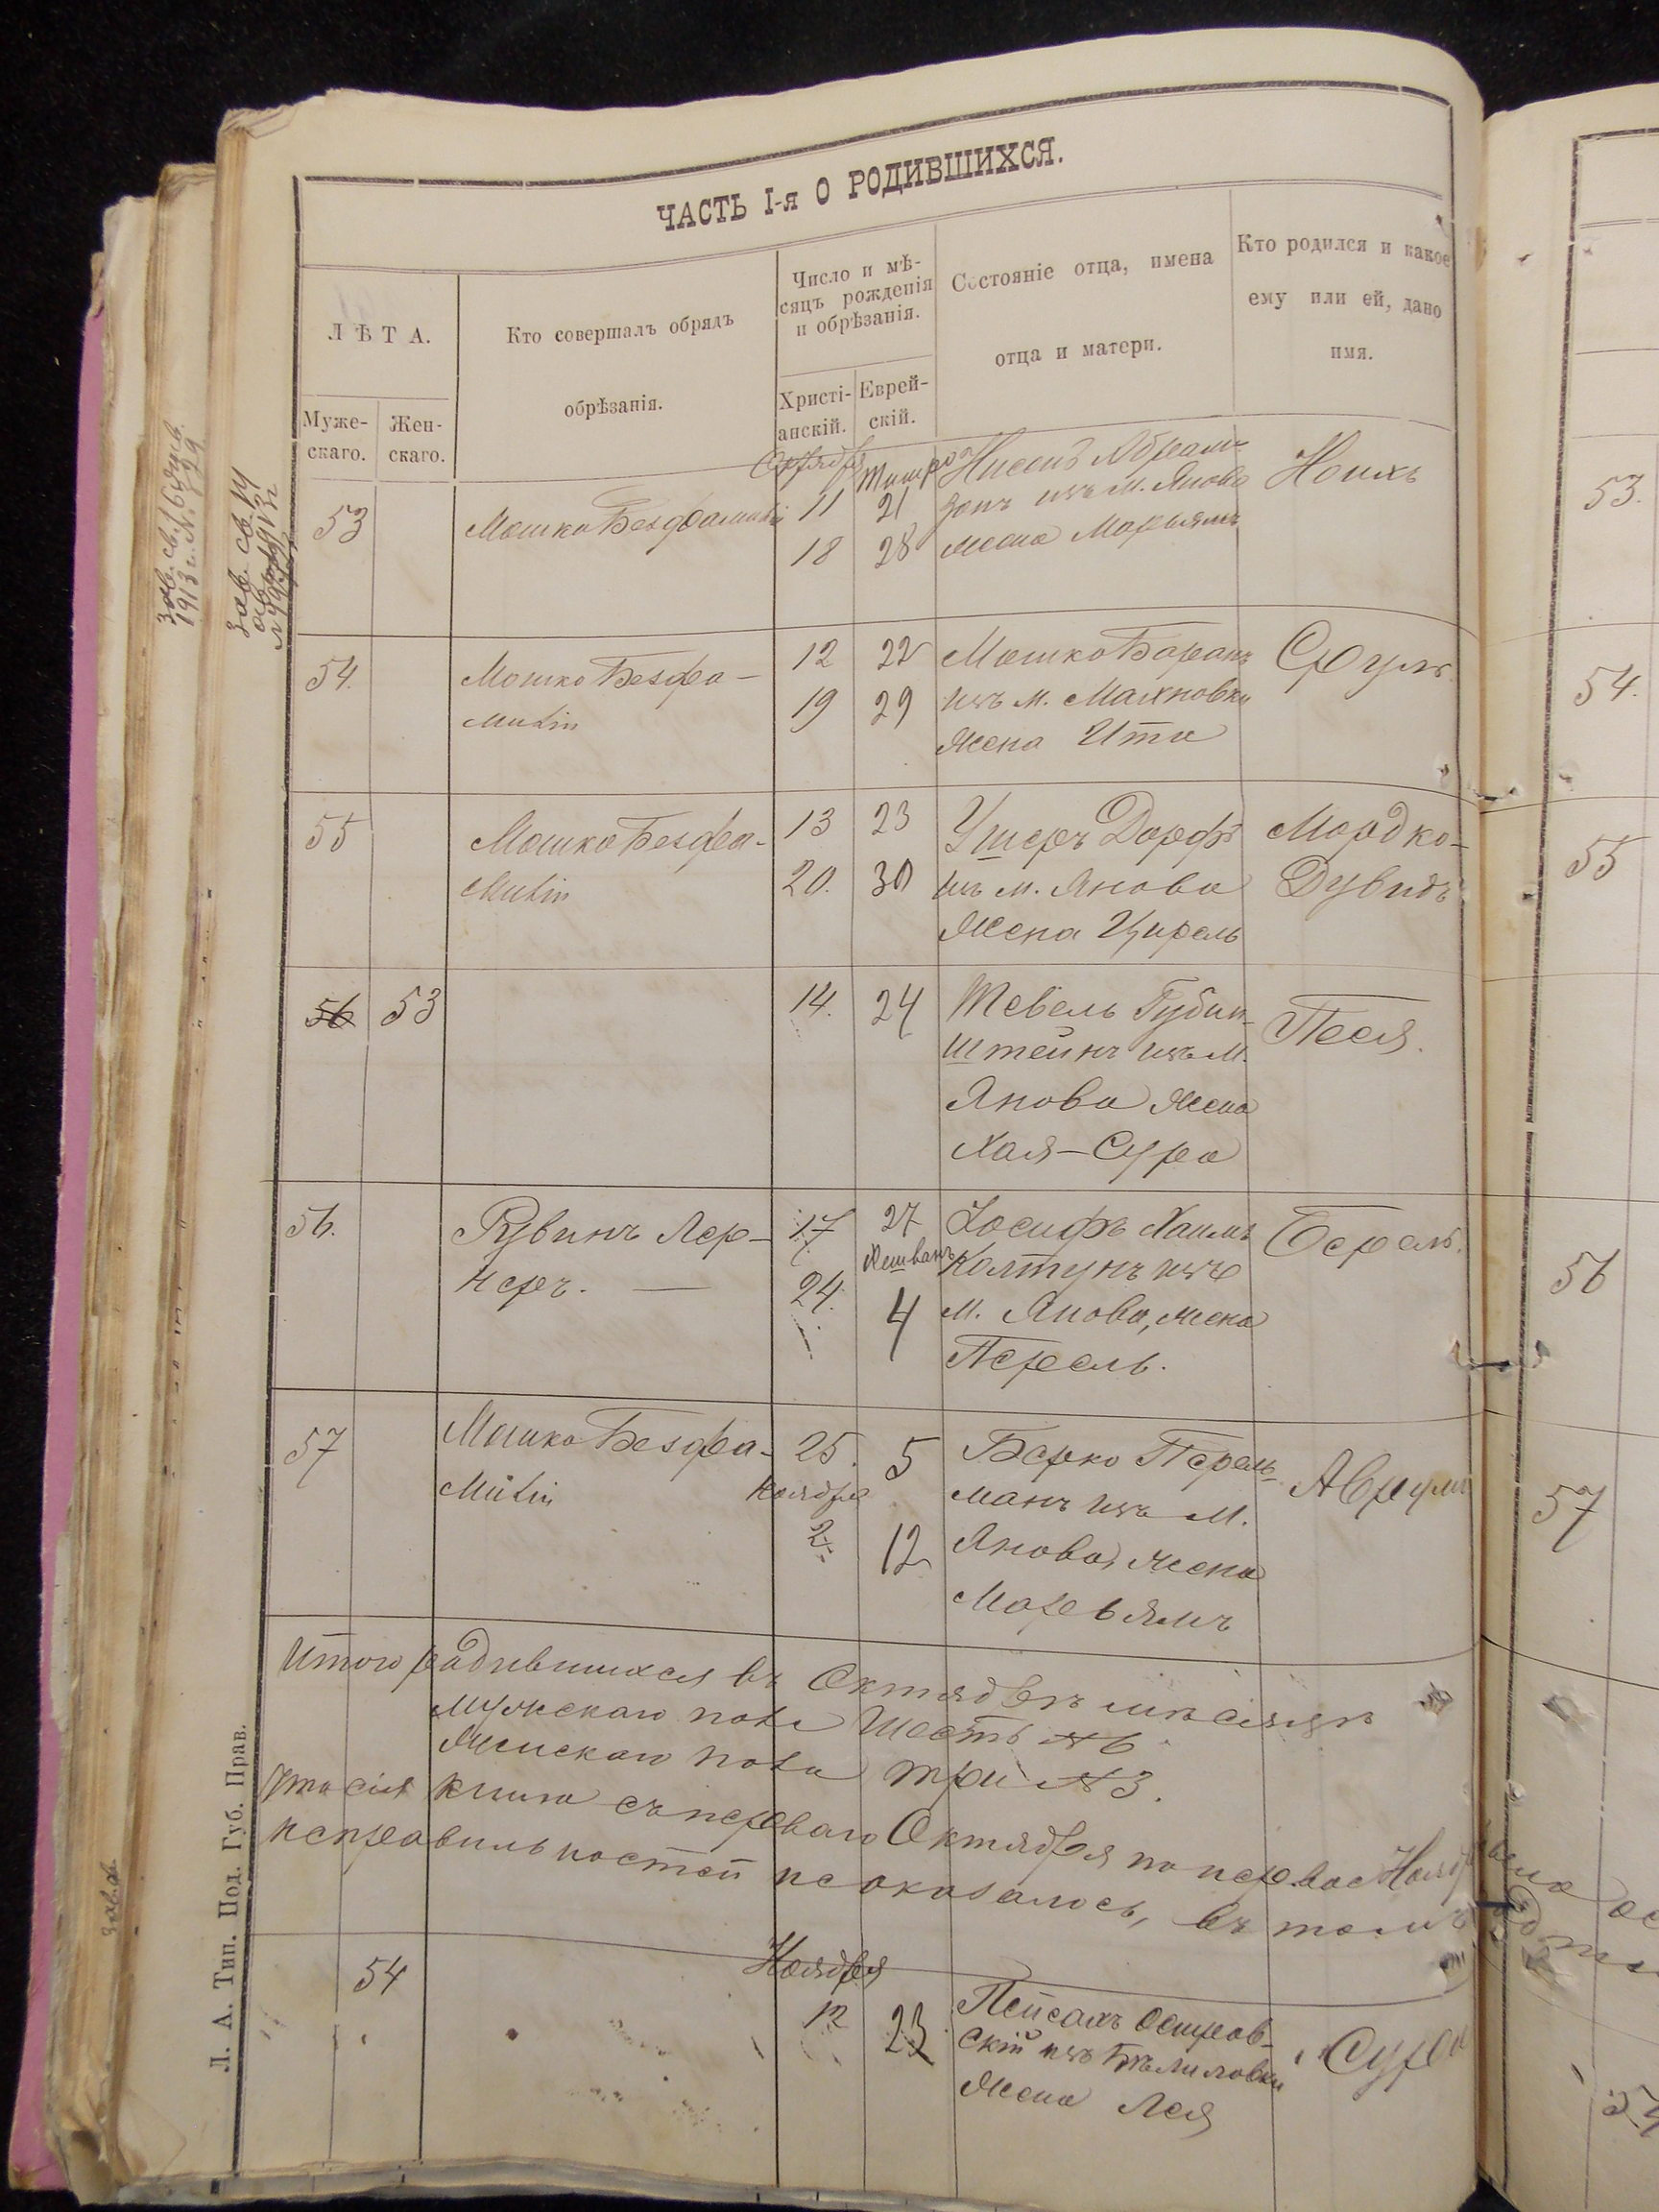 ЧАСТЬ I-я О РОДИВШИХСЯ.
ЛѢТА.
Муже-
скаго.
Жен-
скаго.
Кто совершалъ обрядъ
обрѣзанія.
Число и мѣ-
сяцъ рожденія
и обрѣзанія.
Христі-
анскій.
Еврей-
скій.
Состояніе отца, имена
отца и матери.
Кто родился и какое
ему или ей, дано
имя.
53
Мошко Безфамилій
11
21
18
28
Нисенъ Абрам-
зонъ изъ м. Янова
жена Марьямъ
54.
Мошко Безфа-
милій
12 22
19 29
Мошко Баранъ
изъ м. Махновки
жена Ита
Сруль
55
Мошко Безфа-
милій
13 23
20. 30
Ушеръ Дорфъ
изъ м. Янова
жена Цирель
Мордко-
Дувидъ
56 53
14. 24
Тевель Рубин-
штейнъ изъ м.
Янова жена
Хая-Сура
Песя.
56.
Рувинъ Лер-
неръ. —
17 27
Хешванъ
24. 4
Іосифъ Хаимъ
Колтунъ изъ
м. Янова, жена
Перель.
Берель.
57
Мошко Безфа-
милій
25. 5
Ноября
2 12
Берко Перель-
манъ изъ м.
Янова, жена
Марьямъ
Аврумъ
Итого родившихся въ Октябрѣ мѣсяцѣ
мужскаго пола шесть № 6
женскаго пола три № 3.
Что сія книга съ перваго Октября по первое Ноября
неправильностей не оказалось, въ томъ
54
Ноября
12 23
Пейсахъ Остров-
скій изъ Бѣлиловки
жена Лея
Сура
Л. А. Тип. Под. Губ. Прав.
53.
54.
55
56
57
54